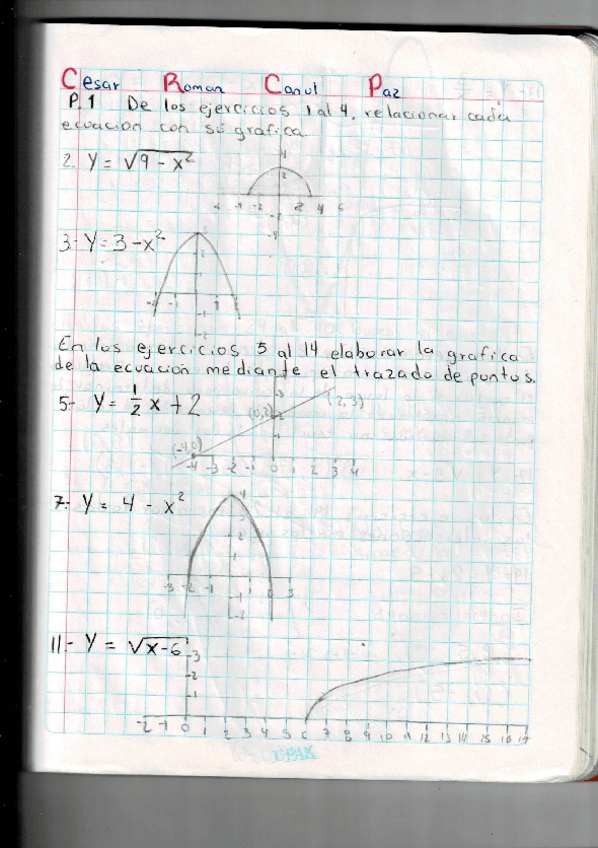 Cesar Roman Canul Paz
P.1 De los ejercicios 1 al 4, relacionar cada
ecuación con su grafica.
2. Y = √9 - x²
4
2
-4 -2 2 4 6
-2
-4
3.- Y = 3 - x²
3
2
1
-2 -1 1
-1
-2
En los ejercicios 5 al 14 elaborar la grafica
de la ecuacion mediante el trazado de puntos.
5.- Y = 1/2 x + 2
(0,2) (2,3)
(-4,0)
-4 -3 -2 -1 0 1 2 3 4
7.- Y = 4 - x²
4
3
2
1
-3 -2 -1 1 2 3
-1
-2
11.- Y = √x-6
3
2
1
-2 -1 0 1 2 3 4 5 6 7 8 9 10 11 12 13 14 15 16 17